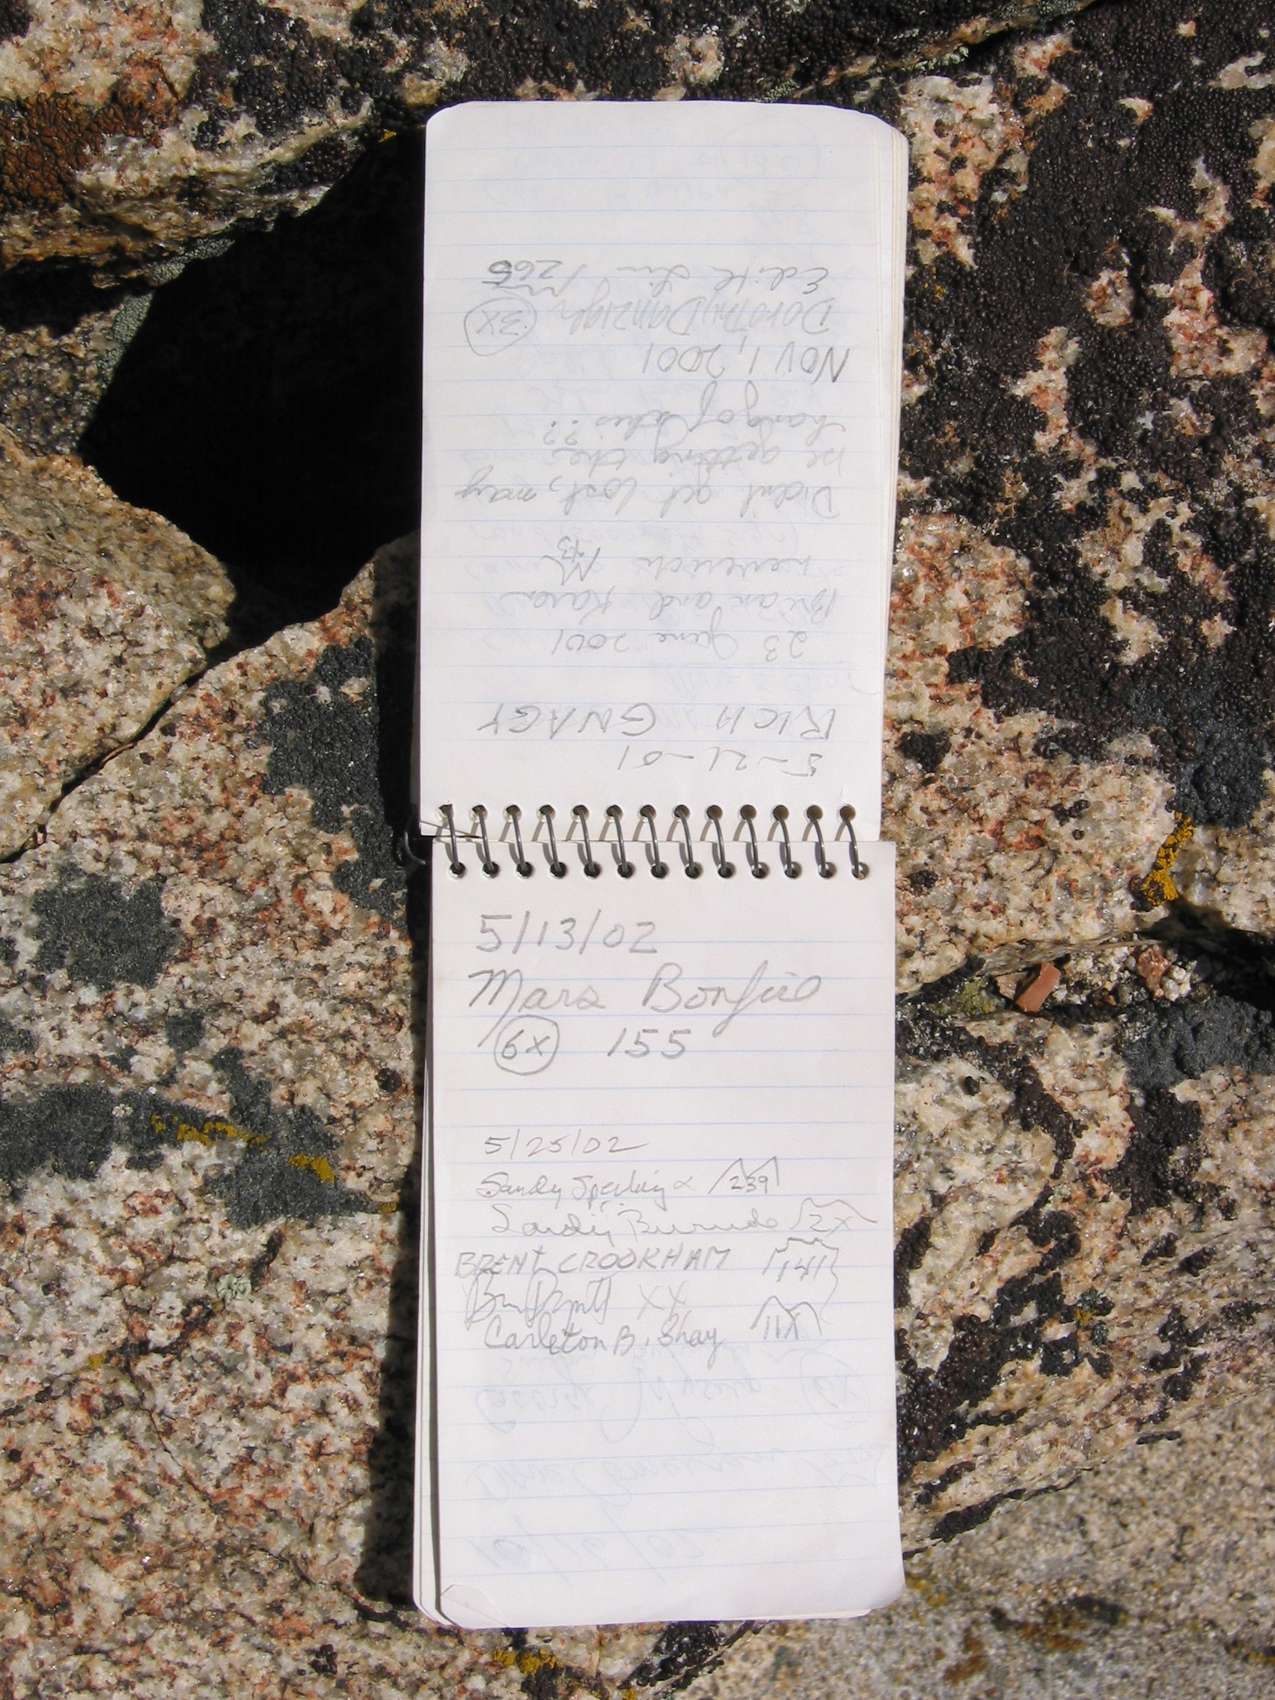 5-21-01
RICH GNAGY
23 June 2001
Brian and Kara
M3
Didnt get lost, may
be getting the
hang of this??
NOV 1, 2001
DOROTHY DANZIGER 3X
Edith Liu 265
5/13/02
Mars Bonfire
6X 155
5/25/02
Sandy Sperling 239
Sandy Burnside 2X
BRENT CROOKHAM 141
XX
Carleton B. Shay 11X